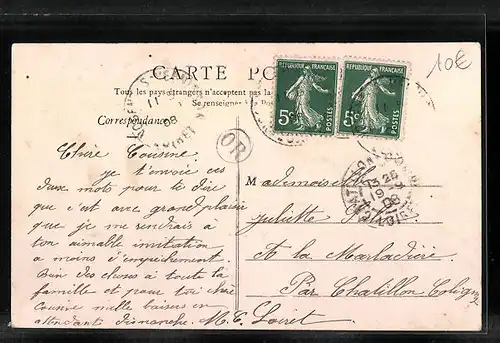 10€
CARTE PO
Tous les pays étrangers n'acceptent pas la
Se renseigner à la Pos
RÉPUBLIQUE FRANÇAISE
5c
POSTES
RÉPUBLIQUE FRANÇAISE
5c
POSTES
Correspondance
OR
Chère Cousine
Je t'envoie ces
deux mots pour te dire
que c'est avec grand plaisir
que je me rendrais à
ton aimable invitation
à moins d'empêchement.
Bien des choses à toute ta
famille et pour toi chère
Cousine mille baisers en
attendant dimanche. M. C. Loiret
Mademoiselle
Juliette
A la Marladière
Par Chatillon Coligny